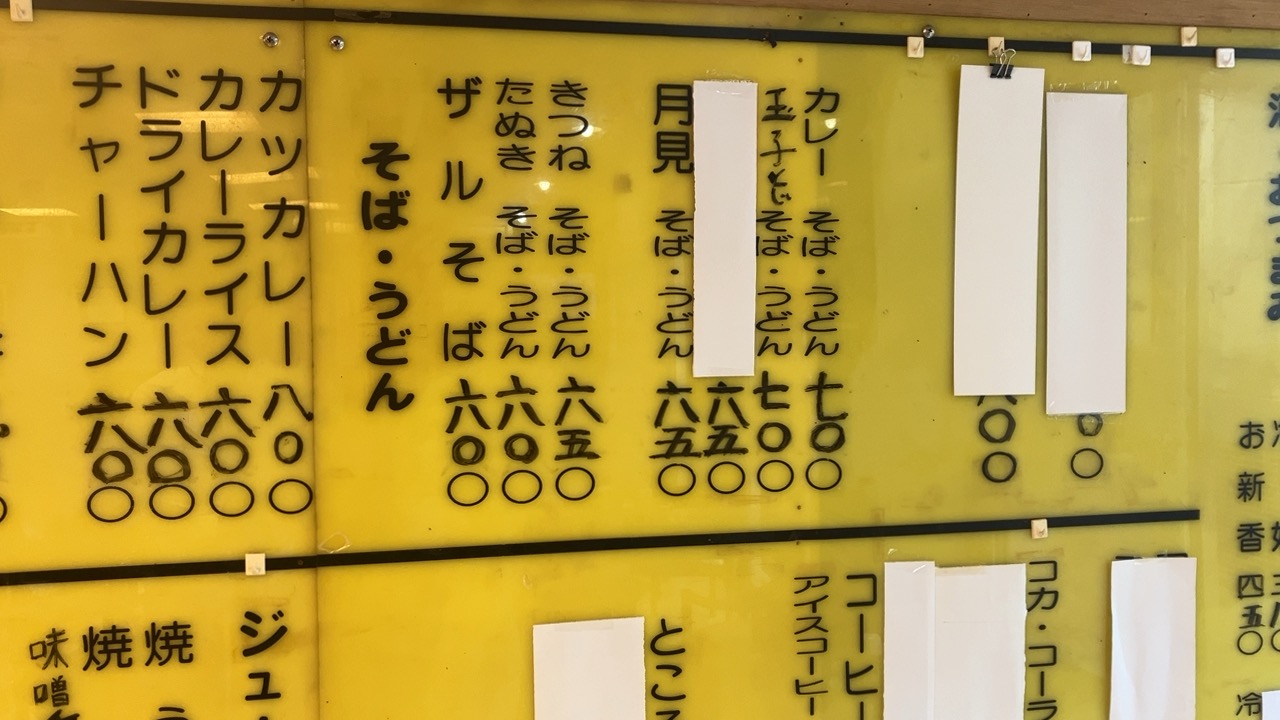 チャーハン 六〇〇
ドライカレー 六〇〇
カレーライス 六〇〇
カツカレー 八〇〇
そば・うどん
ザルそば 六〇〇
たぬき そば・うどん 六〇〇
きつね そば・うどん 六五〇
月見 そば・うどん 六五〇
六五〇
玉子とじ そば・うどん 七〇〇
カレー そば・うどん 七〇〇
〇〇
〇〇
お新香 四五〇
味噌
焼
焼う
ジュ
ところ
アイスコーヒー
コーヒー
コカ・コーラ
冷